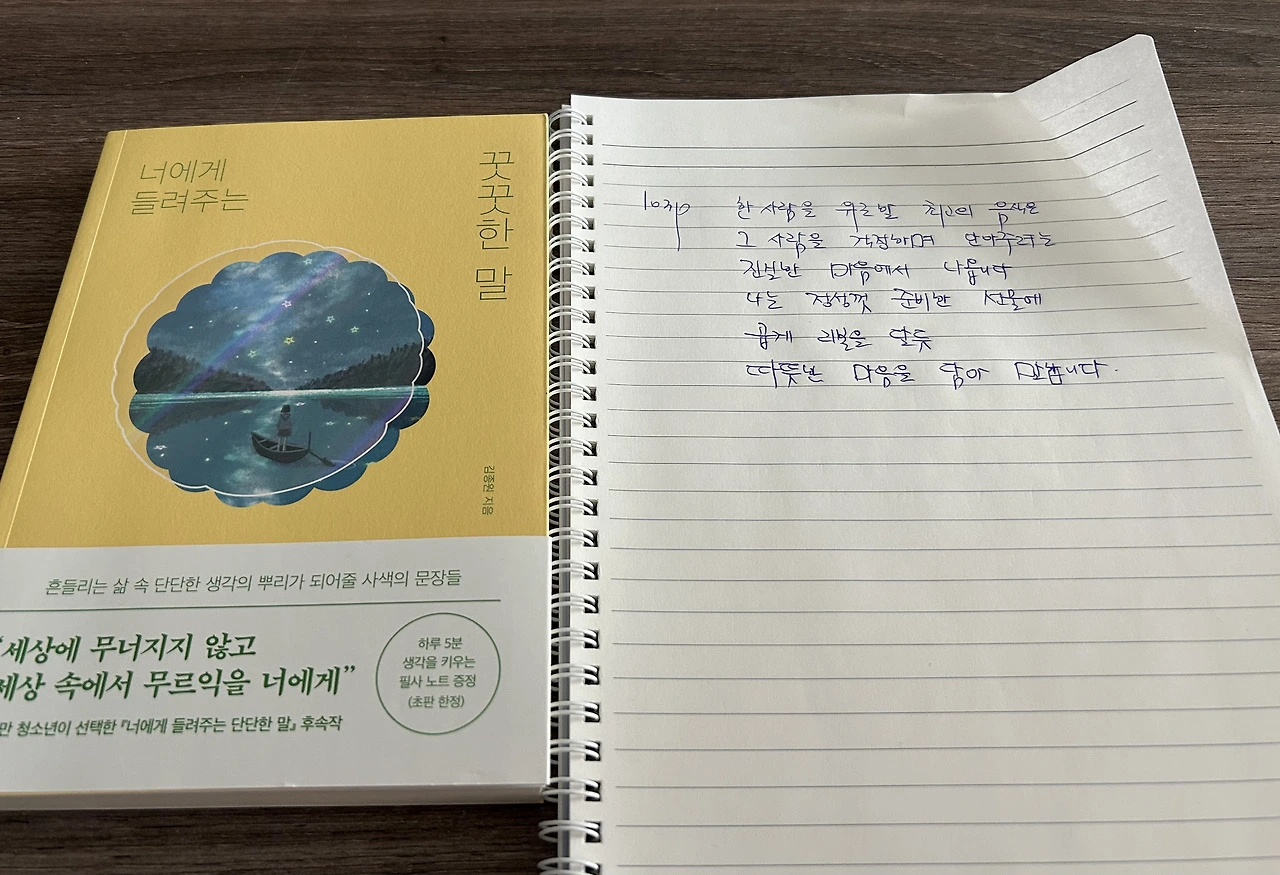 너에게
들려주는
꿋꿋한 말
김종원 지음
흔들리는 삶 속 단단한 생각의 뿌리가 되어줄 사색의 문장들
“세상에 무너지지 않고
세상 속에서 무르익을 너에게”
만 청소년이 선택한 『너에게 들려주는 단단한 말』 후속작
하루 5분
생각을 키우는
필사 노트 증정
(초판 한정)
103p
한 사람을 위로할 최고의 음식은
그 사람을 걱정하며 안아주려는
진실한 마음에서 나옵니다
나는 정성껏 준비한 선물에
곱게 리본을 달듯
따뜻한 마음을 담아 말합니다.